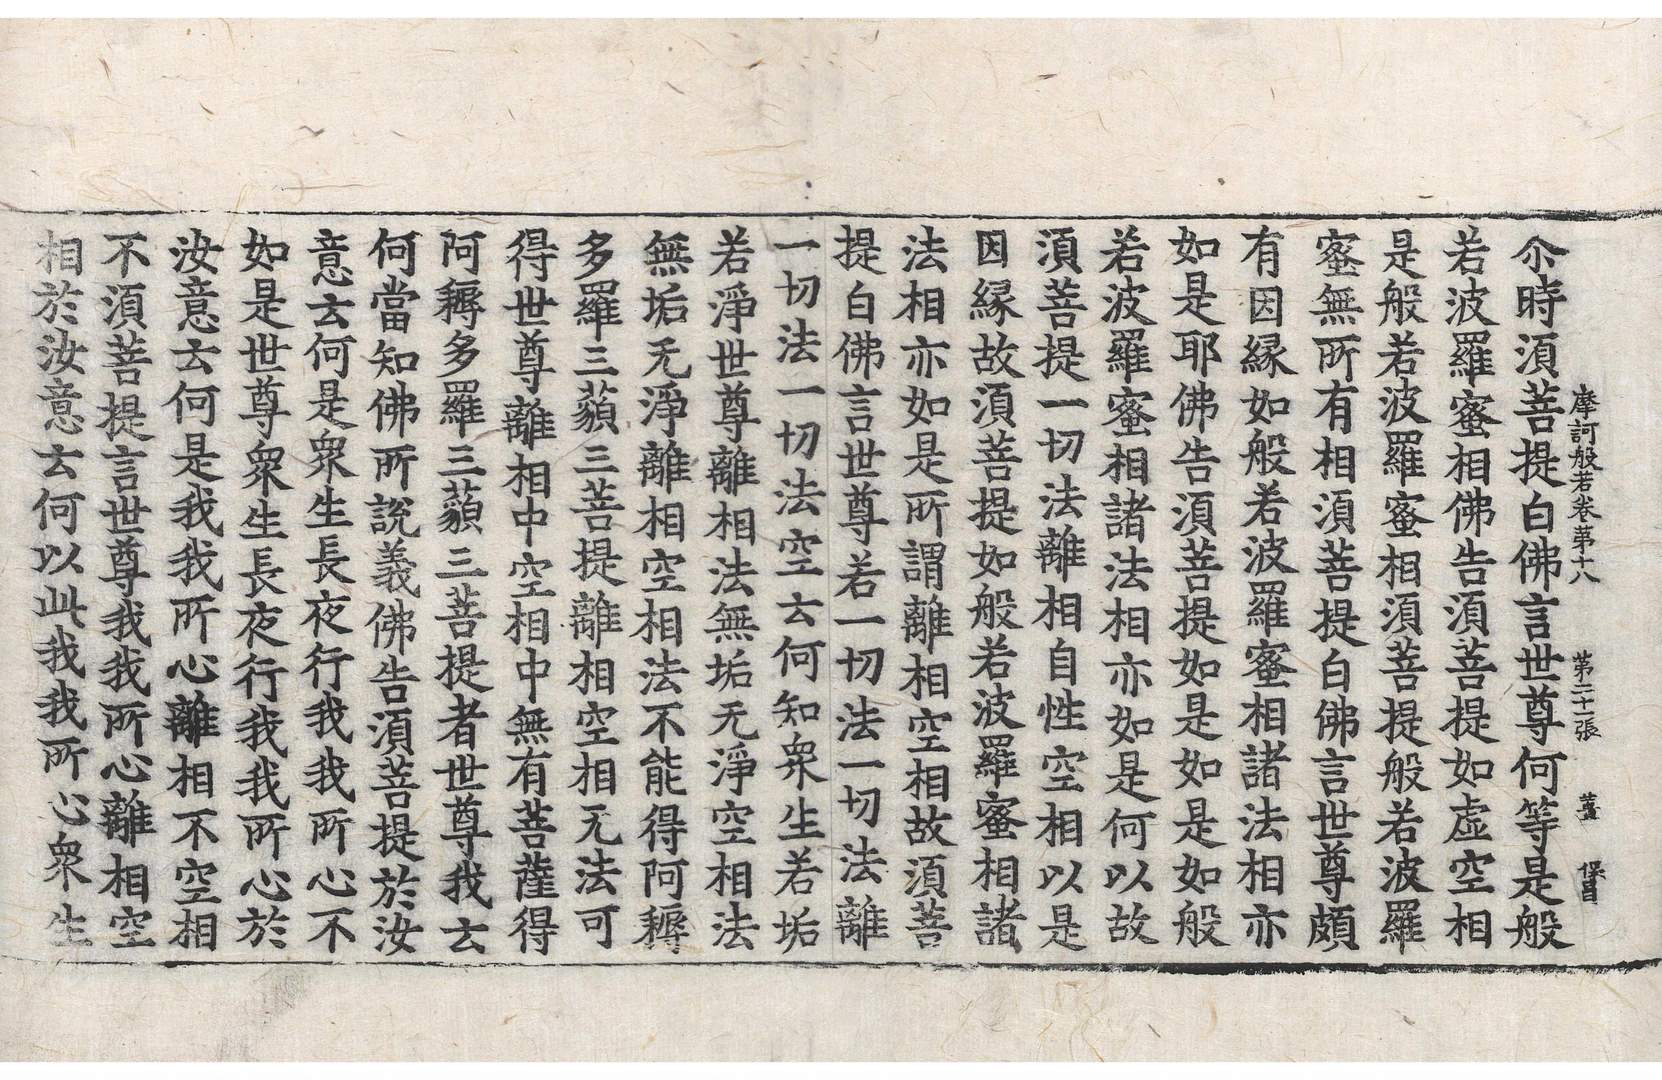 摩訶般若卷第十八　第二十一張　薑　保昌
尒時須菩提白佛言世尊何等是般
若波羅蜜相佛告須菩提如虛空相
是般若波羅蜜相須菩提般若波羅
蜜無所有相須菩提白佛言世尊頗
有因緣如般若波羅蜜相諸法相亦
如是耶佛告須菩提如是如是如般
若波羅蜜相諸法相亦如是何以故
須菩提一切法離相自性空相以是
因緣故須菩提如般若波羅蜜相諸
法相亦如是所謂離相空相故須菩
提白佛言世尊若一切法一切法離
一切法一切法空云何知衆生若垢
若淨世尊離相法無垢无淨空相法
無垢无淨離相空相法不能得阿耨
多羅三藐三菩提離相空相无法可
得世尊離相中空相中無有菩薩得
阿耨多羅三藐三菩提者世尊我云
何當知佛所說義佛告須菩提於汝
意云何是衆生長夜行我我所心不
如是世尊衆生長夜行我我所心於
汝意云何是我我所心離相不空相
不須菩提言世尊我我所心離相空
相於汝意云何以此我我所心衆生